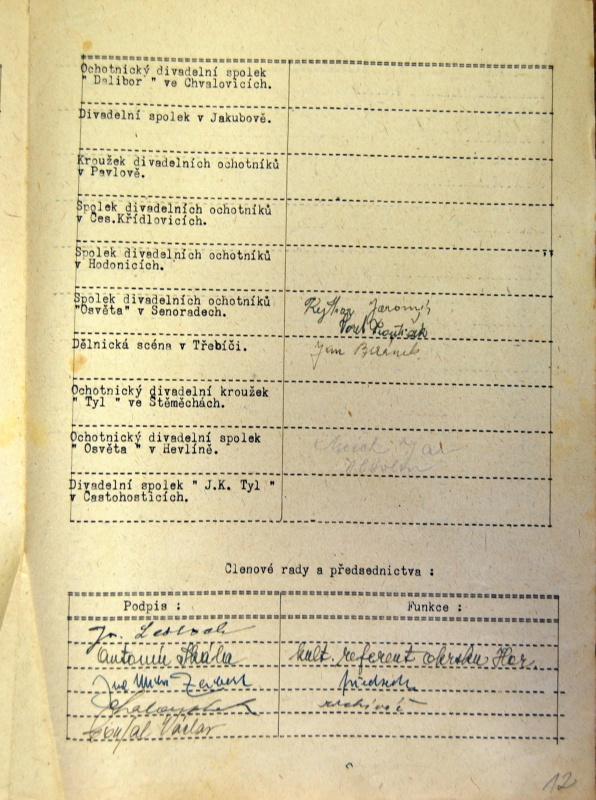 Ochotnický divadelní spolek
" Dalibor " ve Chvalovicích.
Divadelní spolek v Jakubově.
Kroužek divadelních ochotníků
v Pavlově.
Spolek divadelních ochotníků
v Čes.Křídlovicích.
Spolek divadelních ochotníků
v Hodonicích.
Spolek divadelních ochotníků
"Osvěta" v Senoradech.
Jaromír
Dělnická scéna v Třebíči.
Jan
Ochotnický divadelní kroužek
" Tyl " ve Štěměchách.
Ochotnický divadelní spolek
" Osvěta " v Hevlíně.
Divadelní spolek " J.K. Tyl "
v Častohosticích.
Členové rady a předsednictva :
Podpis : Funkce :
Antonín Skála kult. referent okrsku Hor.
archivář
Václav
12